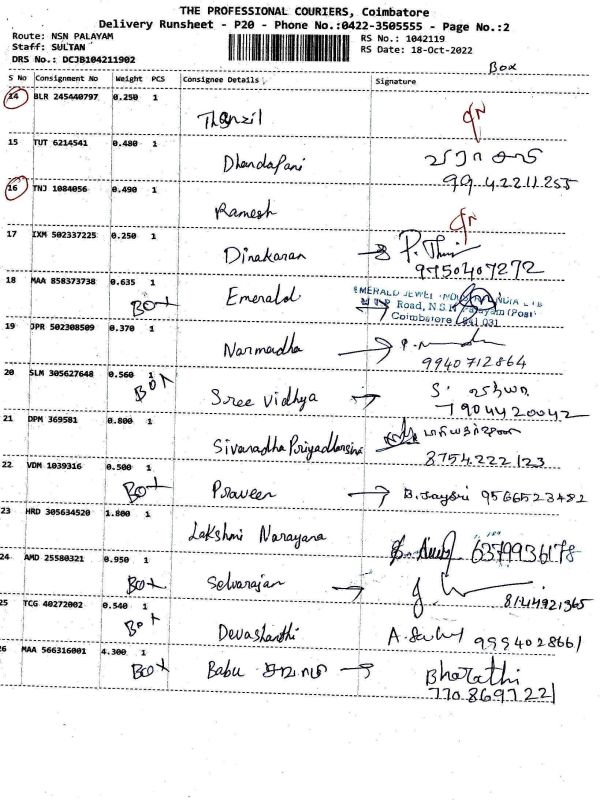 THE PROFESSIONAL COURIERS, Coimbatore
Delivery Runsheet - P20 - Phone No.:0422-3505555 - Page No.:2
Route: NSN PALAYAM
RS No.: 1042119
Staff: SULTAN
RS Date: 18-Oct-2022
DRS No.: DCJB104211902
Box
S No Consignment No Weight PCS Consignee Details Signature
14 BLR 245440797 0.250 1
Thanzil
15 TUT 6214541 0.480 1
Dhandapani
99 42211255
16 TNJ 1084056 0.490 1
Ramesh
17 IXM 502337225 0.250 1
Dinakaran
9750407272
18 MAA 858373738 0.635 1
Box Emerald
Road, N.S.N Palayam (Post)
Coimbatore 641 031
19 JPR 502308509 0.370 1
Narmadha
9940712864
20 SLM 305627648 0.560 1
Box Sree Vidhya
7904420042
21 DPM 369581 0.800 1
8754222123
22 VDM 1039316 0.500 1
Box Praveen B.Jaysri 9566523482
23 HRD 305634520 1.800 1
Lakshmi Narayana 6379936178
24 AMD 25580321 0.950 1
Box Selvarajan
8144921365
25 TCG 40272002 0.540 1
Box Devashanthi 9994028661
26 MAA 566316001 4.300 1
Box Babu Bharathi
7708697221